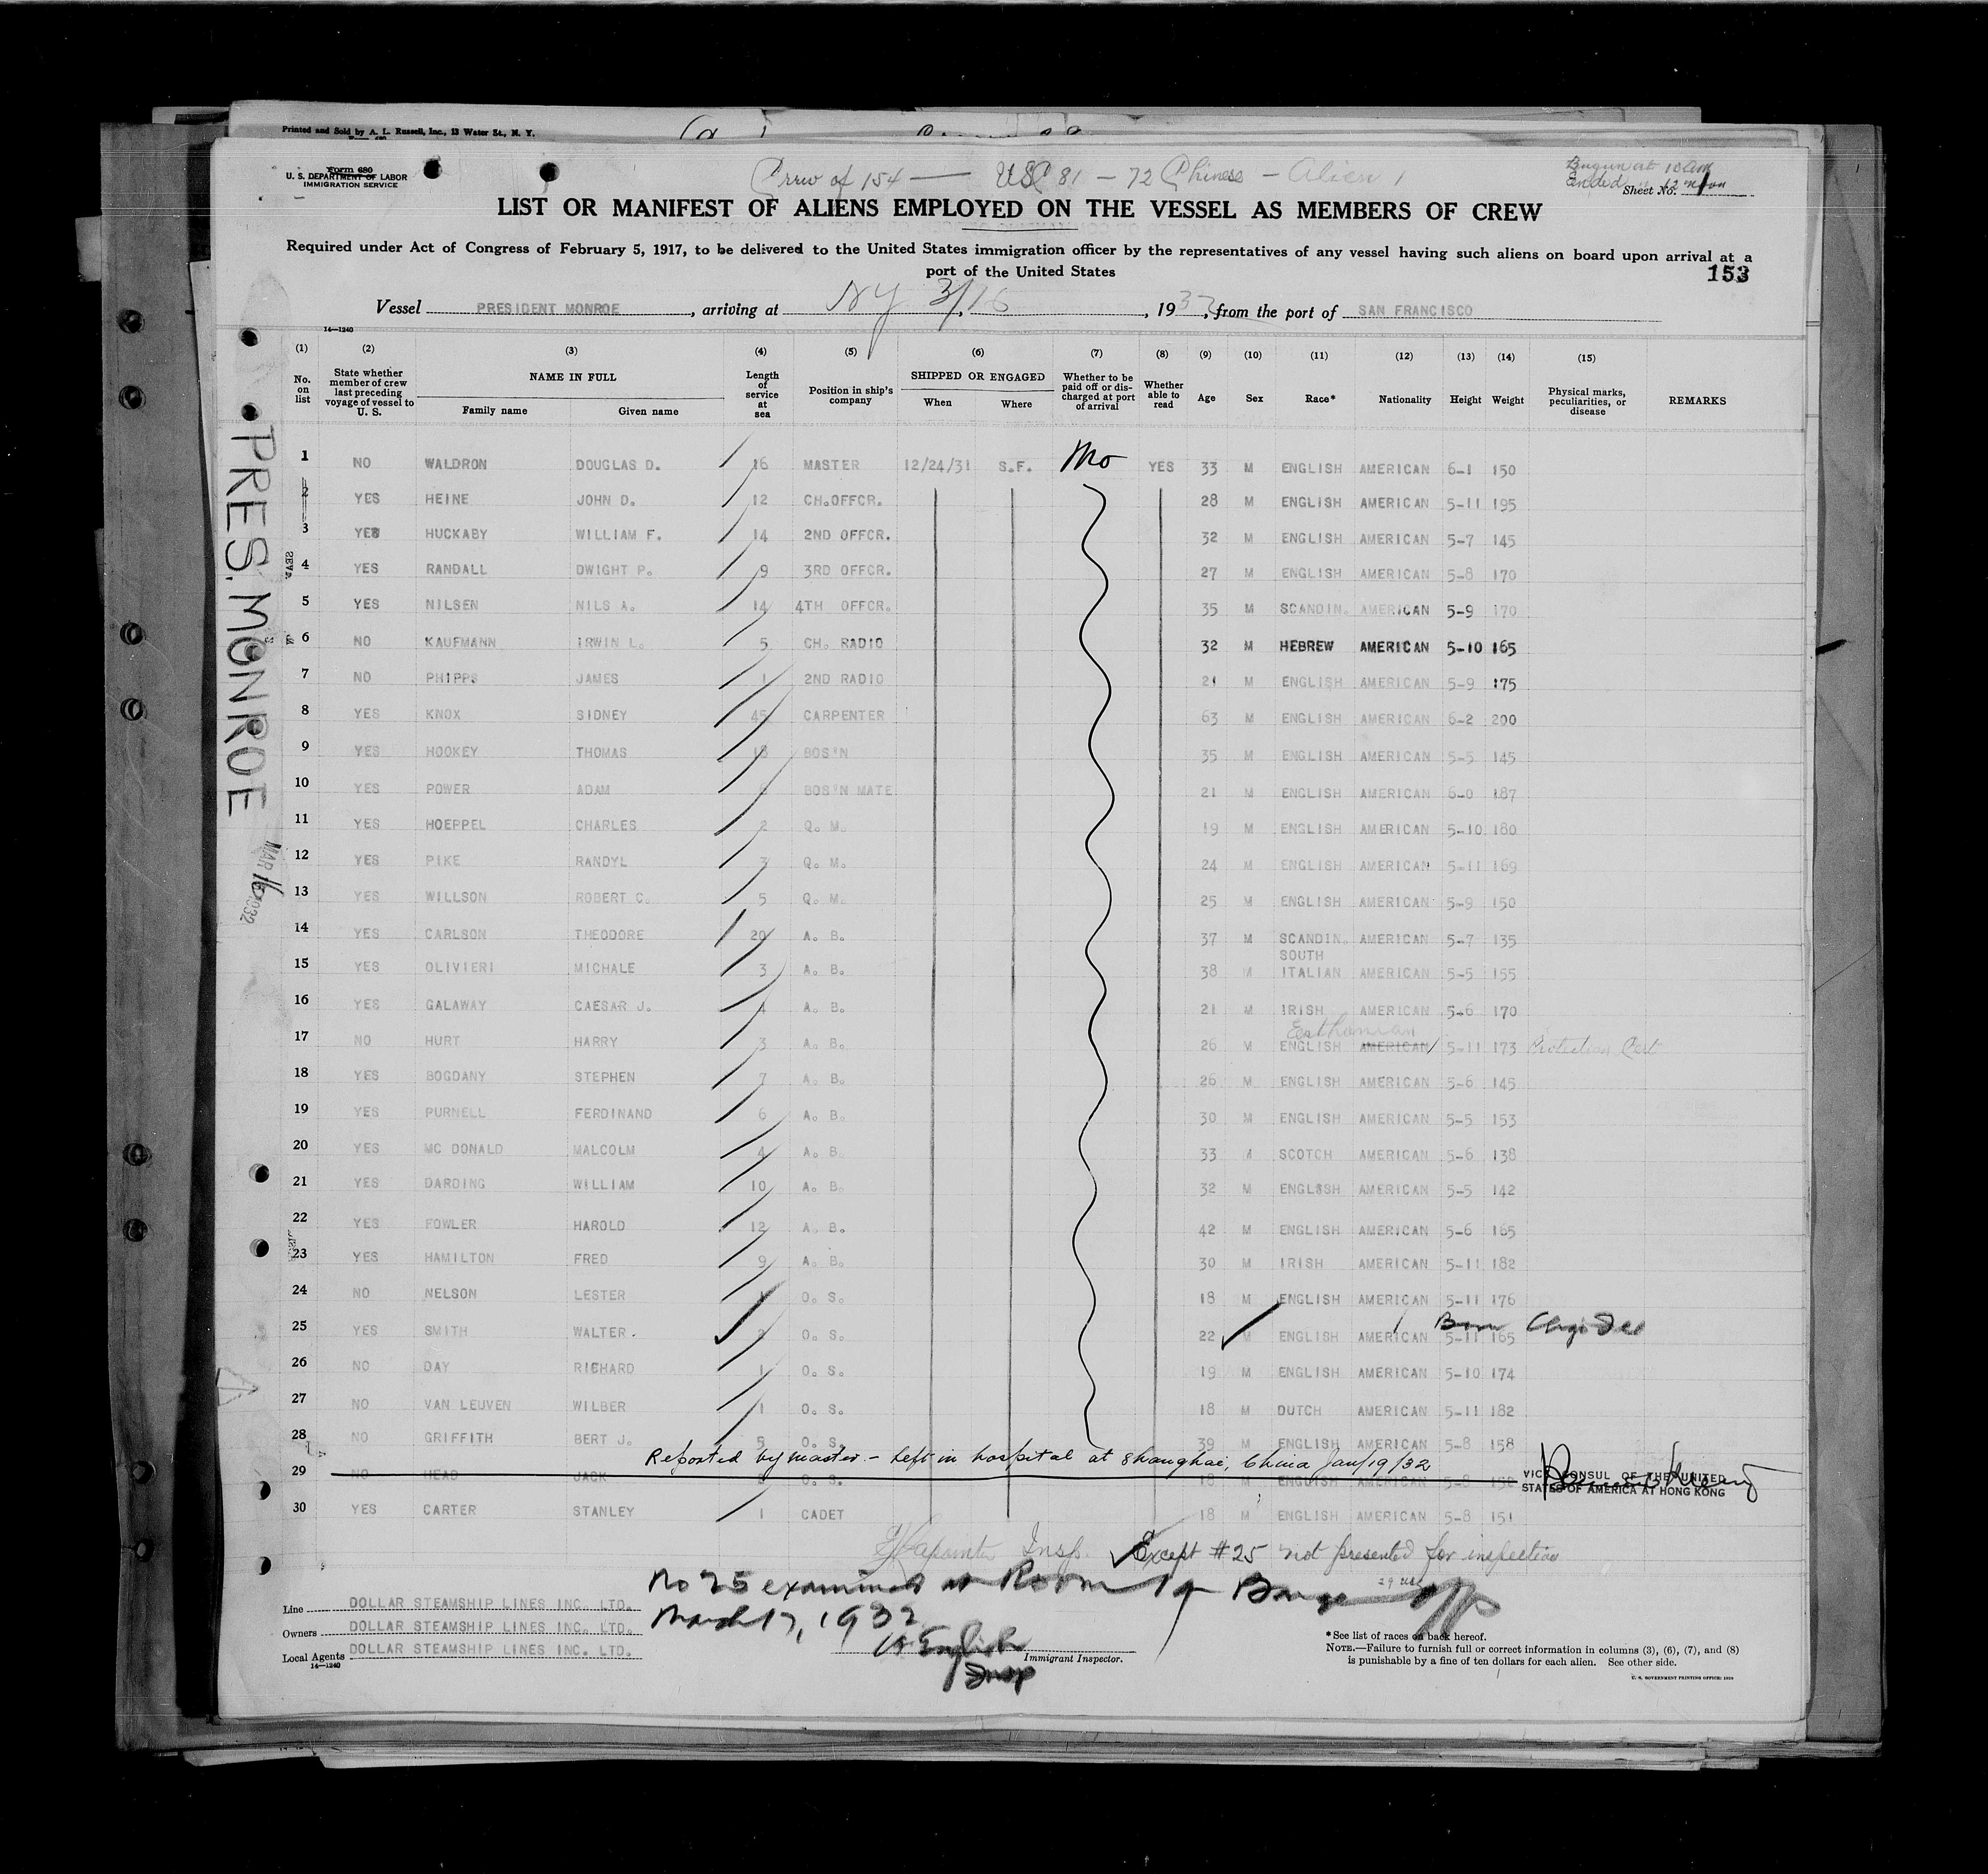 Printed and Sold by A. L. Russell, Inc., 13 Water St., N. Y.
Form 680
U. S. DEPARTMENT OF LABOR
IMMIGRATION SERVICE
Crew of 154 — USC 81 — 72 Chinese — Alien 1
Begun at 10 AM
Ended 12 noon
Sheet No. 1
LIST OR MANIFEST OF ALIENS EMPLOYED ON THE VESSEL AS MEMBERS OF CREW
Required under Act of Congress of February 5, 1917, to be delivered to the United States immigration officer by the representatives of any vessel having such aliens on board upon arrival at a
port of the United States
153
Vessel PRESIDENT MONROE, arriving at NY 3/16, 1932, from the port of SAN FRANCISCO
14—1240
(1) (2) (3) (4) (5) (6) (7) (8) (9) (10) (11) (12) (13) (14) (15)
No. on list
State whether member of crew last preceding voyage of vessel to U. S.
NAME IN FULL
Family name Given name
Length of service at sea
Position in ship's company
SHIPPED OR ENGAGED
When Where
Whether to be paid off or discharged at port of arrival
Whether able to read
Age Sex Race* Nationality Height Weight
Physical marks, peculiarities, or disease
REMARKS
1 NO WALDRON DOUGLAS D. 16 MASTER 12/24/31 S.F. No YES 33 M ENGLISH AMERICAN 6-1 150
2 YES HEINE JOHN D. 12 CH.OFFCR. 28 M ENGLISH AMERICAN 5-11 195
3 YES HUCKABY WILLIAM F. 14 2ND OFFCR. 32 M ENGLISH AMERICAN 5-7 145
4 YES RANDALL DWIGHT P. 9 3RD OFFCR. 27 M ENGLISH AMERICAN 5-8 170
5 YES NILSEN NILS A. 14 4TH OFFCR. 35 M SCANDIN. AMERICAN 5-9 170
6 NO KAUFMANN IRWIN L. 5 CH. RADIO 32 M HEBREW AMERICAN 5-10 165
7 NO PHIPPS JAMES 1 2ND RADIO 21 M ENGLISH AMERICAN 5-9 175
8 YES KNOX SIDNEY 45 CARPENTER 63 M ENGLISH AMERICAN 6-2 200
9 YES HOOKEY THOMAS 18 BOS'N 35 M ENGLISH AMERICAN 5-5 145
10 YES POWER ADAM BOS'N MATE 21 M ENGLISH AMERICAN 6-0 187
11 YES HOEPPEL CHARLES 2 Q. M. 19 M ENGLISH AMERICAN 5-10 180
12 YES PIKE RANDYL 3 Q. M. 24 M ENGLISH AMERICAN 5-11 169
13 YES WILLSON ROBERT C. 5 Q. M. 25 M ENGLISH AMERICAN 5-9 150
14 YES CARLSON THEODORE 20 A. B. 37 M SCANDIN. AMERICAN 5-7 135
15 YES OLIVIERI MICHALE 3 A. B. 38 M SOUTH ITALIAN AMERICAN 5-5 155
16 YES GALAWAY CAESAR J. 4 A. B. 21 M IRISH AMERICAN 5-6 170
Esthonian
17 NO HURT HARRY 3 A. B. 26 M ENGLISH AMERICAN 5-11 173 Protection Cert
18 YES BOGDANY STEPHEN 7 A. B. 26 M ENGLISH AMERICAN 5-6 145
19 YES PURNELL FERDINAND 6 A. B. 30 M ENGLISH AMERICAN 5-5 153
20 YES MC DONALD MALCOLM 4 A. B. 33 M SCOTCH AMERICAN 5-6 138
21 YES DARDING WILLIAM 10 A. B. 32 M ENGLSSH AMERICAN 5-5 142
22 YES FOWLER HAROLD 12 A. B. 42 M ENGLISH AMERICAN 5-6 165
23 YES HAMILTON FRED 9 A. B. 30 M IRISH AMERICAN 5-11 182
24 NO NELSON LESTER O. S. 18 M ENGLISH AMERICAN 5-11 176
25 YES SMITH WALTER. 2 O. S. 22 M ENGLISH AMERICAN 5-11 165 Born
26 NO DAY RICHARD 1 O. S. 19 M ENGLISH AMERICAN 5-10 174
27 NO VAN LEUVEN WILBER 1 O. S. 18 M DUTCH AMERICAN 5-11 182
28 NO GRIFFITH BERT J. 5 O. S. 39 M ENGLISH AMERICAN 5-8 158
Reported by master - Left in hospital at Shanghai, China Jan/19/32
29 NO HEAD JACK O. S. 18 M ENGLISH AMERICAN 5-8
VICE CONSUL OF THE UNITED
STATES OF AMERICA AT HONG KONG
30 YES CARTER STANLEY 1 CADET 18 M ENGLISH AMERICAN 5-8 151
Insp. Except #25 not presented for inspection
No 25 examined at Room Barge Off
March 17, 1932
English
Insp
Line DOLLAR STEAMSHIP LINES INC. LTD.
Owners DOLLAR STEAMSHIP LINES INC. LTD.
Local Agents DOLLAR STEAMSHIP LINES INC. LTD.
14—1240
Immigrant Inspector.
*See list of races on back hereof.
NOTE.—Failure to furnish full or correct information in columns (3), (6), (7), and (8)
is punishable by a fine of ten dollars for each alien. See other side.
U. S. GOVERNMENT PRINTING OFFICE: 1929
PRES. MONROE
MAR 16 1932